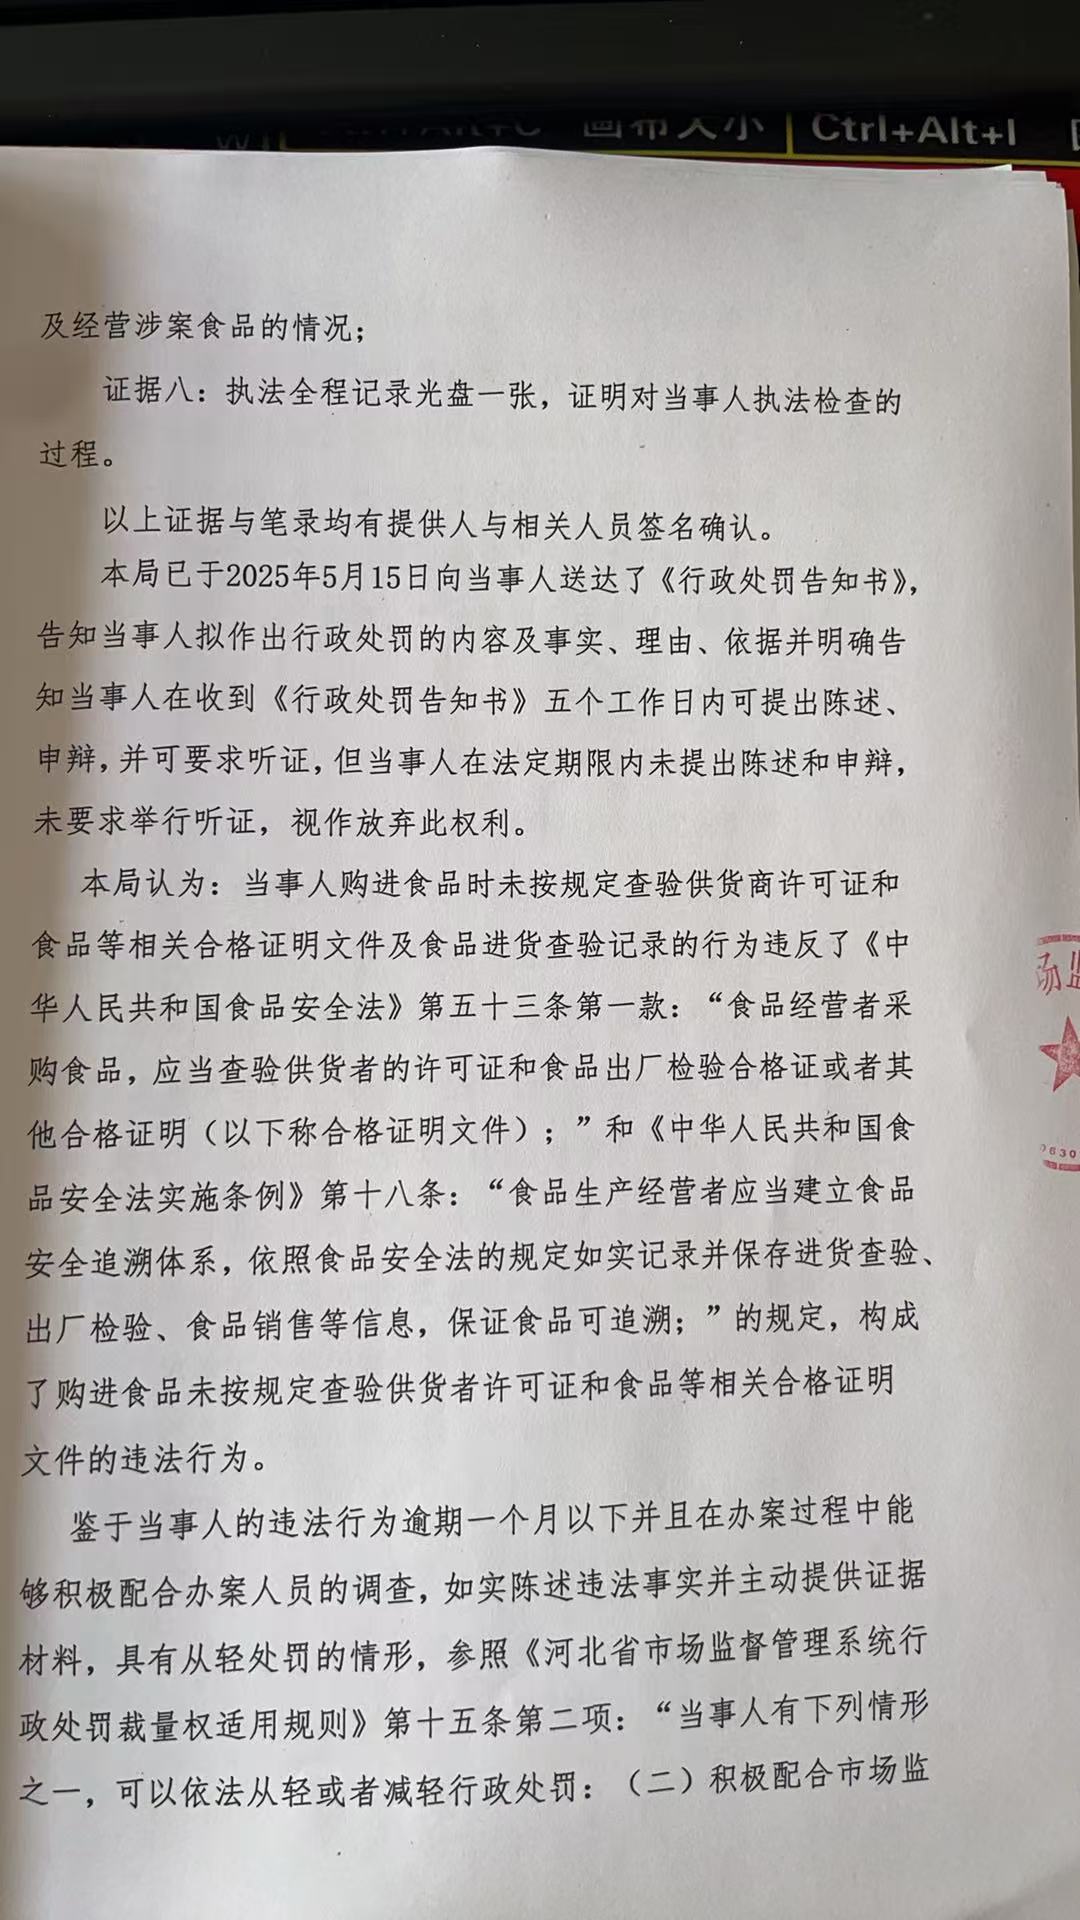 画布大小 Ctrl+Alt+I
及经营涉案食品的情况；
证据八：执法全程记录光盘一张，证明对当事人执法检查的
过程。
以上证据与笔录均有提供人与相关人员签名确认。
本局已于2025年5月15日向当事人送达了《行政处罚告知书》，
告知当事人拟作出行政处罚的内容及事实、理由、依据并明确告
知当事人在收到《行政处罚告知书》五个工作日内可提出陈述、
申辩，并可要求听证，但当事人在法定期限内未提出陈述和申辩，
未要求举行听证，视作放弃此权利。
本局认为：当事人购进食品时未按规定查验供货商许可证和
食品等相关合格证明文件及食品进货查验记录的行为违反了《中
华人民共和国食品安全法》第五十三条第一款：“食品经营者采
购食品，应当查验供货者的许可证和食品出厂检验合格证或者其
他合格证明（以下称合格证明文件）；”和《中华人民共和国食
品安全法实施条例》第十八条：“食品生产经营者应当建立食品
安全追溯体系，依照食品安全法的规定如实记录并保存进货查验、
出厂检验、食品销售等信息，保证食品可追溯；”的规定，构成
了购进食品未按规定查验供货者许可证和食品等相关合格证明
文件的违法行为。
鉴于当事人的违法行为逾期一个月以下并且在办案过程中能
够积极配合办案人员的调查，如实陈述违法事实并主动提供证据
材料，具有从轻处罚的情形，参照《河北省市场监督管理系统行
政处罚裁量权适用规则》第十五条第二项：“当事人有下列情形
之一，可以依法从轻或者减轻行政处罚：（二）积极配合市场监
场监
0630